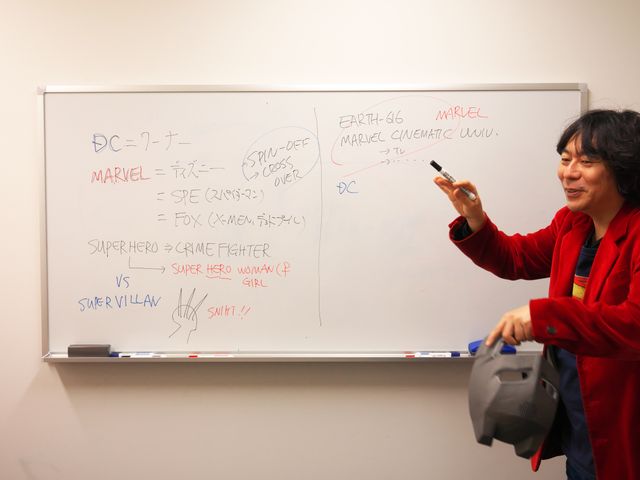 DC = ワーナー
MARVEL = ディズニー
= SPE (スパイダーマン)
= FOX (X-MEN, デッドプール)
SPIN-OFF
→ CROSS
OVER
SUPERHERO ⇒ CRIME FIGHTER
SUPER HERO WOMAN (F
GIRL
VS
SUPER VILLAN
SNIKT!!
EARTH-616 MARVEL
MARVEL CINEMATIC UNIV.
→ TV
→ ・・・・・
DC